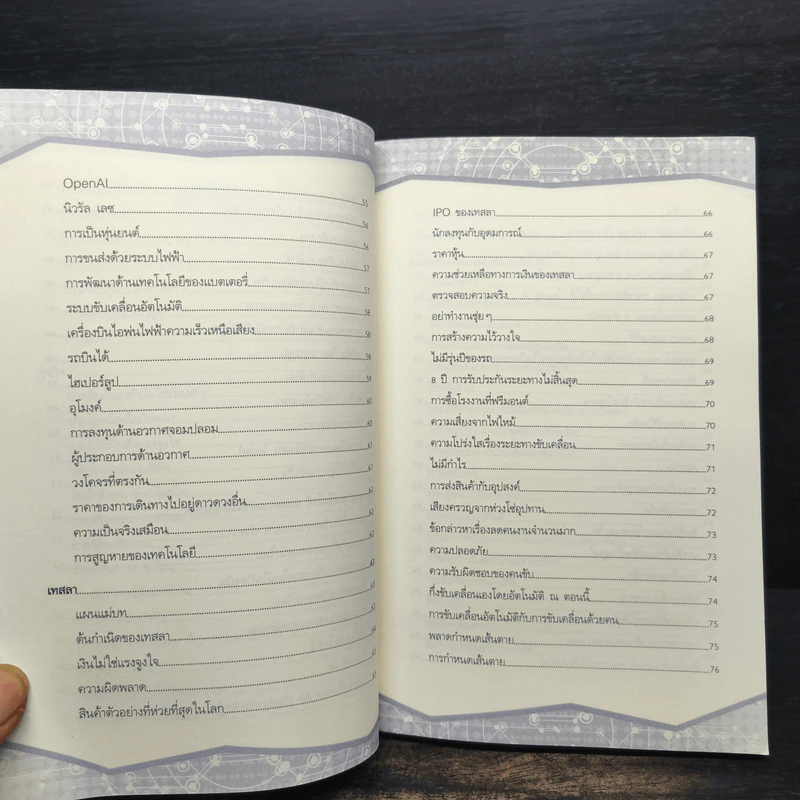 OpenAI 55
นิวรัล เลซ 56
การเป็นหุ่นยนต์ 56
การขนส่งด้วยระบบไฟฟ้า 57
การพัฒนาด้านเทคโนโลยีของแบตเตอรี่ 57
ระบบขับเคลื่อนอัตโนมัติ 58
เครื่องบินไอพ่นไฟฟ้าความเร็วเหนือเสียง 58
รถบินได้ 58
ไฮเปอร์ลูป 59
อุโมงค์ 60
การลงทุนด้านอวกาศจอมปลอม 60
ผู้ประกอบการด้านอวกาศ 61
วงโคจรที่ตรงกัน 61
ราคาของการเดินทางไปอยู่ดาวดวงอื่น 62
ความเป็นจริงเสมือน 62
การสูญหายของเทคโนโลยี 62
เทสลา 63
แผนแม่บท 63
ต้นกำเนิดของเทสลา 64
เงินไม่ใช่แรงจูงใจ
ความผิดพลาด
สินค้าตัวอย่างที่ห่วยที่สุดในโลก
IPO ของเทสลา 66
นักลงทุนกับอุดมการณ์ 66
ราคาหุ้น 67
ความช่วยเหลือทางการเงินของเทสลา 67
ตรวจสอบความจริง 67
อย่าทำงานชุ่ยๆ 68
การสร้างความไว้วางใจ 68
ไม่มีรุ่นปีของรถ 69
8 ปี การรับประกันระยะทางไม่สิ้นสุด 69
การซื้อโรงงานที่ฟรีมอนต์ 70
ความเสี่ยงจากไฟไหม้ 70
ความโปร่งใสเรื่องระยะทางขับเคลื่อน 71
ไม่มีกำไร 71
การส่งสินค้ากับอุปสงค์ 72
เสียงครวญจากห่วงโซ่อุปทาน 72
ข้อกล่าวหาเรื่องลดคนงานจำนวนมาก 73
ความปลอดภัย 73
ความรับผิดชอบของคนขับ 74
กึ่งขับเคลื่อนเองโดยอัตโนมัติ ณ ตอนนี้ 74
การขับเคลื่อนอัตโนมัติกับการขับเคลื่อนด้วยคน 75
พลาดกำหนดเส้นตาย 75
การกำหนดเส้นตาย 76